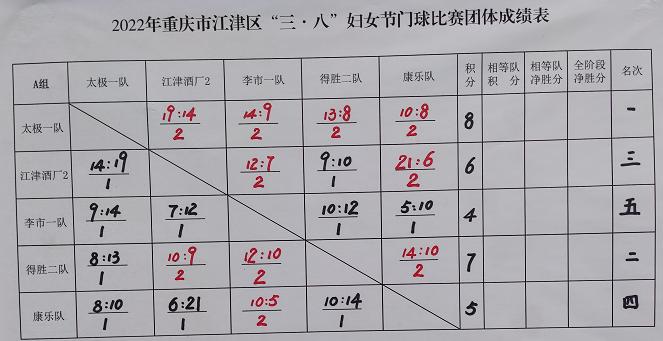 2022年重庆市江津区“三·八”妇女节门球比赛团体成绩表
A组 太极一队 江津酒厂2 李市一队 得胜二队 康乐队 积分 相等队积分 相等队净胜分 全阶段净胜分 名次
太极一队 19:14/2 14:9/2 13:8/2 10:8/2 8 一
江津酒厂2 14:19/1 12:7/2 9:10/1 21:6/2 6 三
李市一队 9:14/1 7:12/1 10:12/1 5:10/1 4 五
得胜二队 8:13/1 10:9/2 12:10/2 14:10/2 7 二
康乐队 8:10/1 6:21/1 10:5/2 10:14/1 5 四